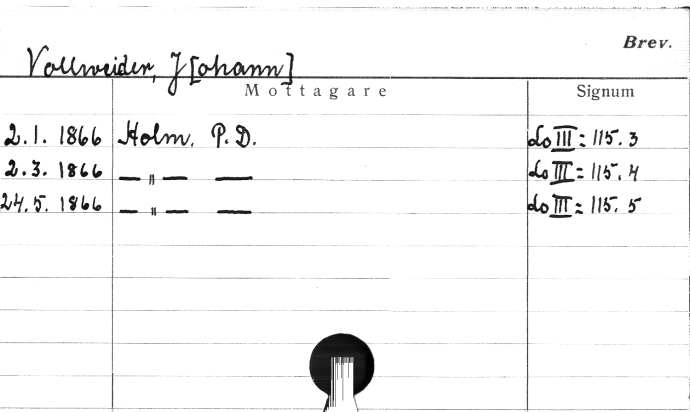 Brev.
Vollweider, J[ohann]
Mottagare Signum
2.1. 1866 Holm, P.D. do III: 115. 3
2.3. 1866 — " — — do III: 115. 4
24.5. 1866 — " — — do III: 115. 5